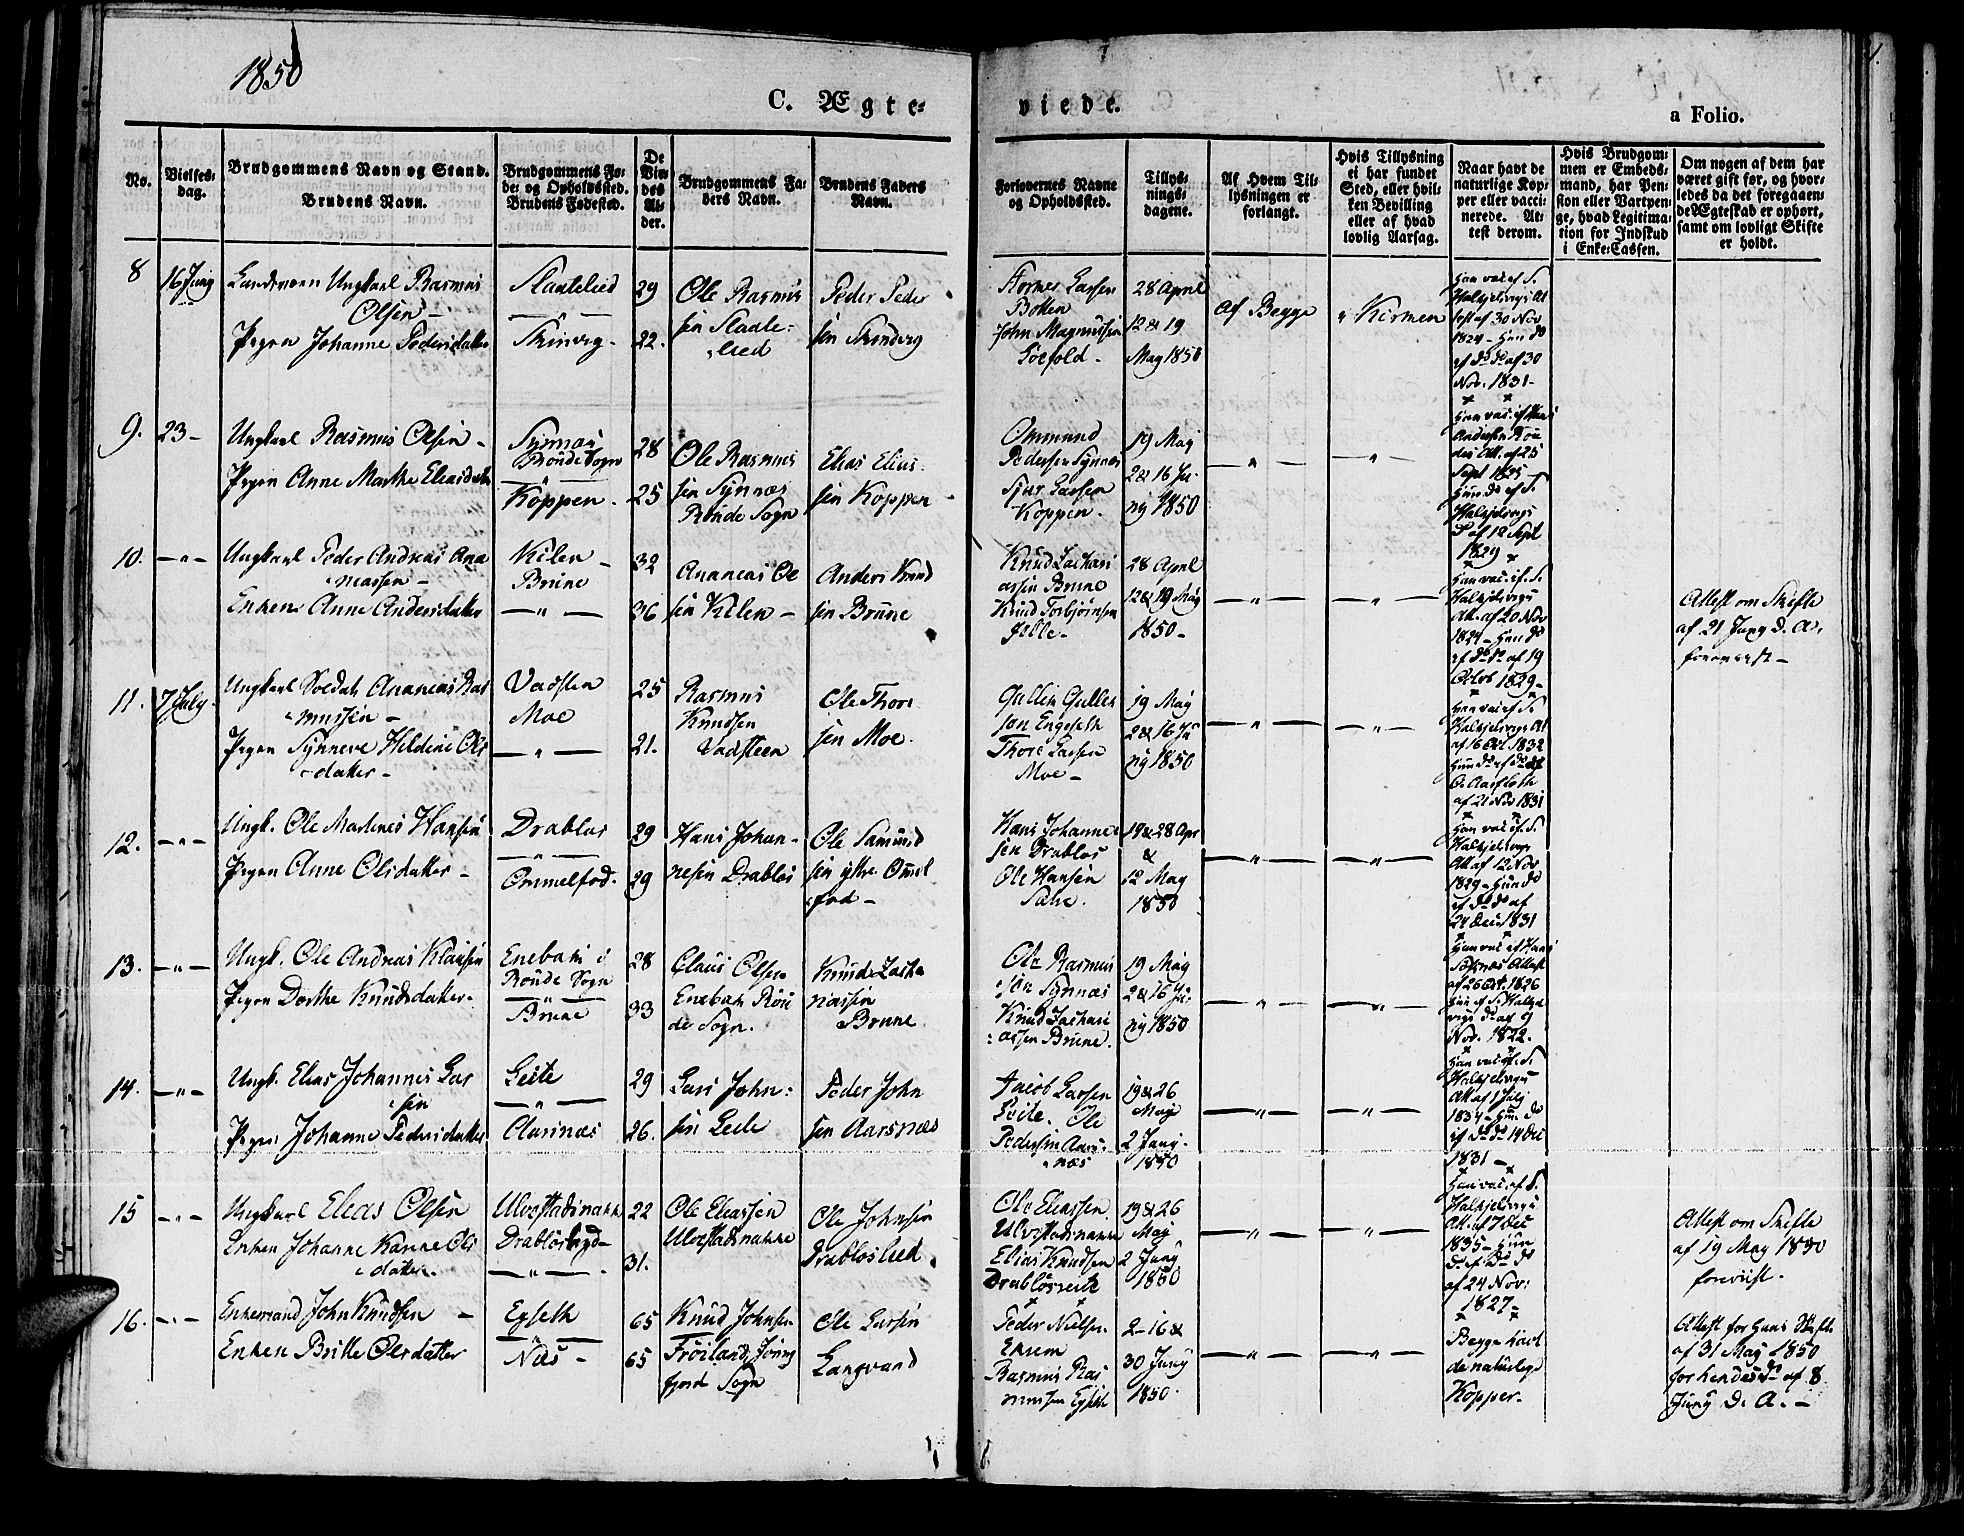 1850
C. Ægte-
viede.
a Folio.
No.
Vielses-
dag.
Brudgommens Navn og Stand.
Brudens Navn.
Brudgommens Fø-
de- og Opholdssted.
Brudens Fødested.
De
Vie-
des
Al-
der.
Brudgommens Fa-
ders Navn.
Brudens Faders
Navn.
Forlovernes Navne
og Opholdssted.
Tillys-
nings-
dagene.
Af Hvem Til-
lysningen er
forlangt.
Hvis Tillysning
ei har fundet
Sted, eller hvil-
ken Bevilling
eller af hvad
lovlig Aarsag.
Naar havt de
naturlige Kop-
per eller vacci-
nerede. At-
test derom.
Hvis Brudgom-
men er Embeds-
mand, har Pen-
sion eller Vartpen-
ge, hvad Legitima-
tion for Indskud
i Enke-Cassen.
Om nogen af dem har
været gift før, og hvor-
ledes da det foregaaen-
de Ægteskab er ophørt,
samt om lovligt Skifte
er holdt.
8
16 Juny
Ungkarl Rasmus
Olsen -
Pigen Johanne Pedersdatter
29
22.
Ole Rasmus
sen
Peder Peder
sen
Lassen
John Magnussen
28 April
12 & 19
May 1850
Af Begge
" Kirken
Han vac. af S.
Halkjelsvigs At
test af 30 Nov
1824 - Hun do
af do do af 30
Nov. 1831 -
9.
23 -
Ungkarl Rasmus Olsen -
Pigen Anne Marthe Eliasdatter
Synnæs
Roude Sogn
Koppen -
28
25
Ole Rasmus
sen Synnæs
Roude Sogn
Elias Elias
sen Koppen
Ommund
Pedersen Synnæs
Sjur Lassen
Koppen.
19 May
2 & 16 Ju
ny 1850
— " —
— " —
Han vac. af Hans
Andersen Rou
des Att. af 25
Sept 1825
Hun do af S.
Halkjelsvigs
do af 12 Sept
1829
10.
— " —
Ungkarl Peder Andreas Ana
niassen -
Enken Anne Andersdatter
Kilen -
Brune
— " —
32
36
Ananias Ole
sen Kilen -
Anders Knud
sen Brune
Knud Zachari
assen Brune
Knud Torbjørnsen
28 April
12 & 19 May
1850 -
— " —
— " —
Han vac. af S.
Halkjelsvigs
Att. af 20 Nov
1824 - Hun do
af do do af 19
Octob 1829 -
Attest om Skifte
af 21 Juny d. A.
foreviist -
11.
7 July
Ungkarl Soldat Ananias Ras
mussen -
Pigen Synneve Heldine Ols
datter -
Vadsten
Moe
— " —
25
21.
Rasmus
Knudsen
Vadsteen
Ole Thore
sen Moe.
Gullik Gullik
sen Engeseth
Thore Lassen
Moe -
19 May
2 & 16 Ju
ny 1850
— " —
— " —
Han vac. af S.
Halkjelsvigs At
af 16 Oct. 1832
Hun do af do
af 21 Nov 1831
12.
— " —
Ungk. Ole Martines Hansen
Pigen Anne Olsdatter -
Drablos
— " —
Ommelfod.
29
29
Hans Johan-
nesen Drablos
Ole Samund
sen ytre Omel
fod -
Hans Johanne
sen Drablos
Ole Hansen
19 & 28 Apr
&
12 May
1850
— " —
— " —
Han vac. af S.
Halkjelsvigs
Att af 12 Nov
1829 - Hun do
af do do af
24 Dec. 1831
13.
— " —
Ungk. Ole Andreas Klausen
Pigen Dorthe Knudsdatter -
Enebak i
Roude Sogn
— " —
Brune
28
33
Claus Olsen
Enebak Rou
de Sogn.
Knud Zacha
riassen
Brune
Ole Rasmus
sen Synnæs
Knud Zachari
assen Brune.
19 May
2 & 16 Ju
ny 1850
— " —
— " —
Attest
af 26 Oct. 1826
Nov. 1822.
14.
— " —
Ungk. Elias Johannes Las
sen
Pigen Johanne Pedersdatter
Leite
— " —
29
26.
Lars John-
sen Leite
Peder John
sen Aarsnæs
Jacob Larsen
Leite. Ole
Pedersen Aars-
næs
19 & 26
May
2 Juny.
1850
— " —
— " —
Han vac. af S.
Halkjelsvigs
Att af 1 July
1834 - Hun do
af do do 14 Dec
1831 -
15
— " —
Ungkarl Elias Olsen
Enken Johanne Karine Ols
datter.
Ulvestadsnakke
— " —
22
31.
Ole Eliassen
Ulvestadsnakke
Ole Johnsen
Drabloslied
Ole Eliassen
Ulvestadsnakke
Elias Knudsen
19 & 26
May
2 Juny
1850
— " —
— " —
Han vac. af S.
Halkjelsvigs
Att af 7 Dec
1835 - Hun
do af do do
af 24 Nov:
1827 -
Attest om Skifte
af 19 May 1850
foreviist.
16.
— " —
Enkemand John Knudsen -
Enken Britte Olsdatter
Egseth
— " —
Næs -
65
65
Knud Johnsen
Frøiland, Jøring
fjord Sogn
Ole Larsen
Langvand
Peder Nielsen
Ekrem
Rasmus Ras
mussen Egseth
2 - 16 &
30 Juny
1850.
— " —
— " —
Begge havt
de naturlige
Kopper.
Attest for hans Skifte
af 31 May 1850
for hendes do af 8
Juny d. A. -